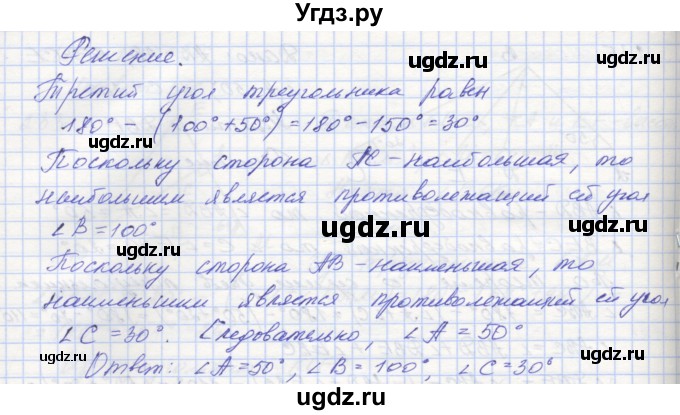 Угдз.ру
Решение.
ugdz.ru ugdz.ru
Третий угол треугольника равен
180° - (100° + 50°) = 180° - 150° = 30°
Поскольку сторона АС - наибольшая, то
ugdz.ru ugdz.ru
наибольшим является противолежащий ей угол
ugdz.ru
∠B = 100°
ugdz.ru
Поскольку сторона АВ - наименьшая, то
ugdz.ru
наименьшим является противолежащий ей угол
∠C = 30°. Следовательно, ∠A = 50°
ugdz.ru ugdz.ru
Ответ: ∠A = 50°, ∠B = 100°, ∠C = 30°
ugdz.ru